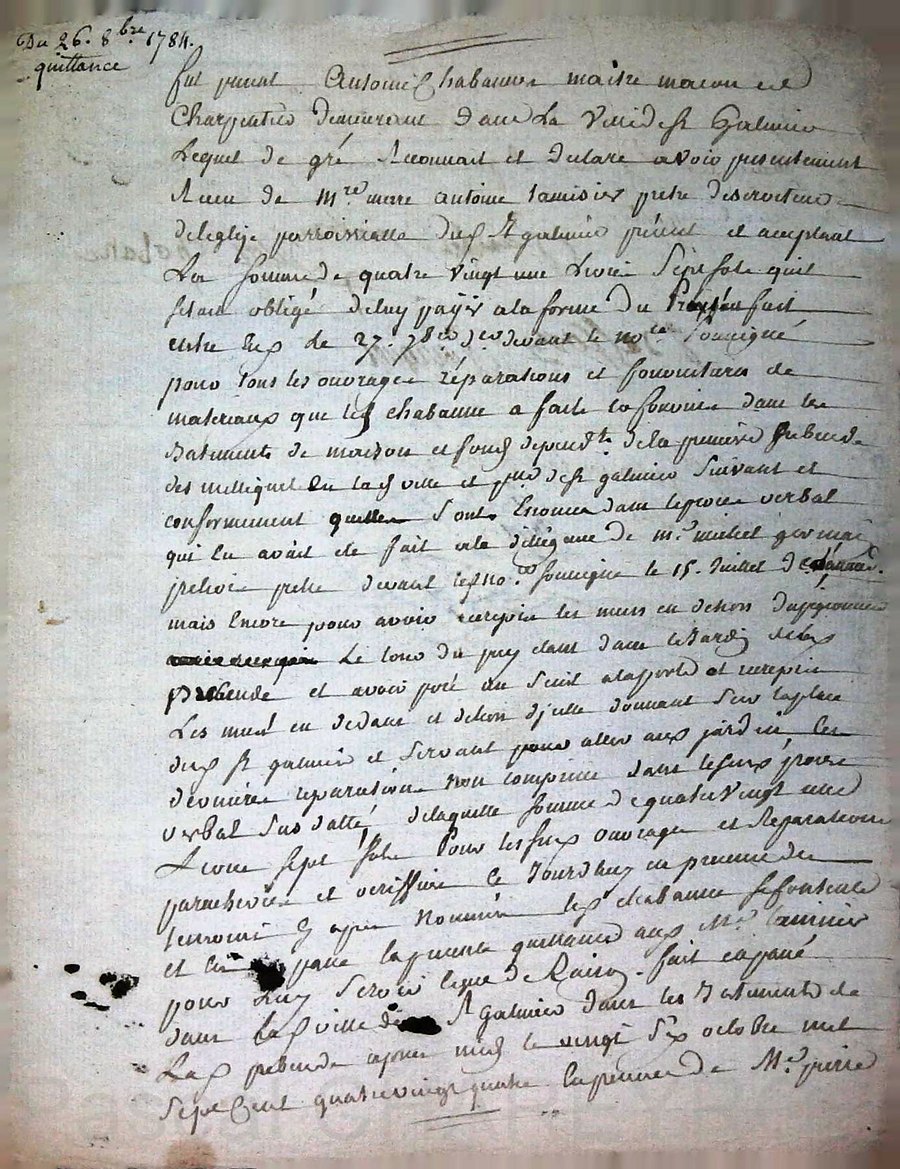 Du 26. 8bre 1784.
quittance
fut pnent Antoine Chabanne maitre macon et
Charpentier demeurant dans La Ville de st Galmier
Lequel de gré Reconnait et declare avoir presentement
Receu de Mre antoine tamisier pretre
de leglise parroissialle dud St galmier pnent et aceptant
La somme de quatre vingt une Livre Sept sols quil
setait obligé deluy payer a la forme du fait
entre Eux Le 27. 7bre der devant le nore soussigné
pour tous les ouvrages réparations et fournitures de
materiaux que led chabanne a fait dans les
Batiments de maison et fond depend.ts de la premiere prebende
des en lad ville et de st galmier Suivant et
conformement quelles sont Enoncé dans le procé verbal
qui en avait ete fait de mre michel
pretre devant led nore soussigne le 15. Juillet
mais Encore pour avoir recrepir les murs en dehors
Le tour du puy etant dans le Jardin de lad
prebende et avoir posé un seuil a la porte et recrepir
Les murs en dedans et dehors dicelle donnant sur la place
dud st galmier et servant pour aller aux jardin, Ces
dernieres reparations non comprise dans le susd procé
verbal sus datté, de laquelle somme de quatre vingt une
Livre sept sols Pour les susd ouvrages et Reparations
parachevée et veriffiée ce Jourdhuy en presence des
temoins cy apres nommés led chabanne se contente
et en passe la presente quittance aud Mre tamisier
pour Luy servir ceque de Raison. fait et passé
dans Lad ville de St Galmier dans les Batiments de
Lad prebende apres midy le vingt six octobre mil
sept cent quatrevingt quatre en presence de Mre pierre